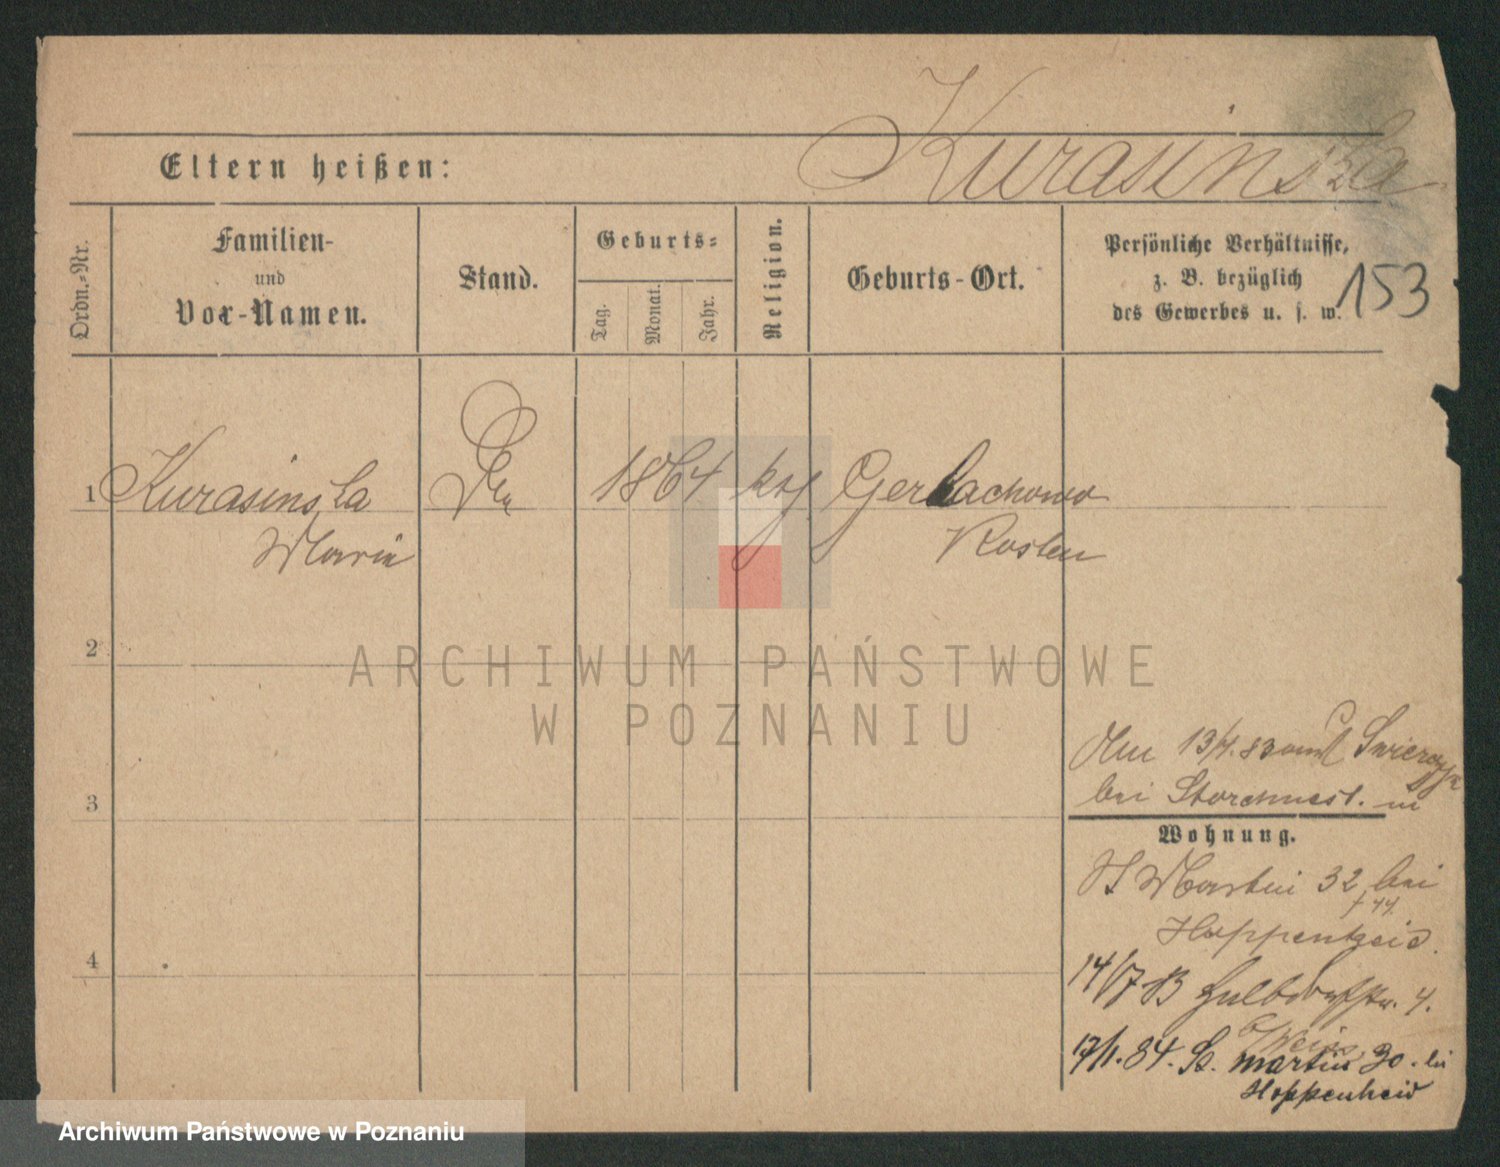 Kurasinska
Eltern heißen:
Ordn.-Nr.
Familien-
und
Vor-Namen.
Stand.
Geburts-
Tag.
Monat.
Jahr.
Religion.
Geburts-Ort.
Persönliche Verhältnisse,
z. B. bezüglich
des Gewerbes u. s. w.
153
1 Kurasinska 1864 kth Gerlachowo
Maria Kosten
2
3
4
13/4. 83
bei Storchnest.
Wohnung.
St Martin 32 bei
Hoppenheid.
14/7 83 Halbdorfstr. 4.
b/ Weiss
17/1. 84. St. Martin 30. bei
Hoppenheid
ARCHIWUM PAŃSTWOWE
W POZNANIU
Archiwum Państwowe w Poznaniu